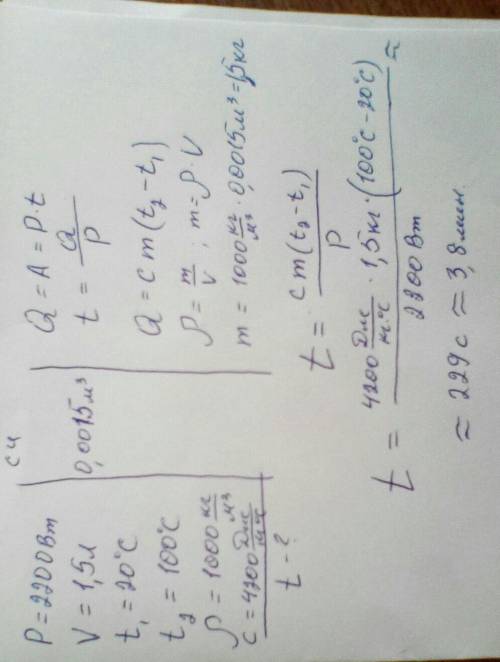 P = 2200 Вт
V = 1,5 л
t₁ = 20°C
t₂ = 100°C
ρ = 1000 кг/м³
c = 4200 Дж/кг·°C
t - ?
си
0,0015 м³
Q = A = P·t
t = Q/P
Q = cm(t₂ - t₁)
ρ = m/V ; m = ρ·V
m = 1000 кг/м³ · 0,0015 м³ = 1,5 кг
t = cm(t₂ - t₁)/P
t = 4200 Дж/кг·°C · 1,5 кг · (100°C - 20°C)/2200 Вт ≈
≈ 229 c ≈ 3,8 мин.